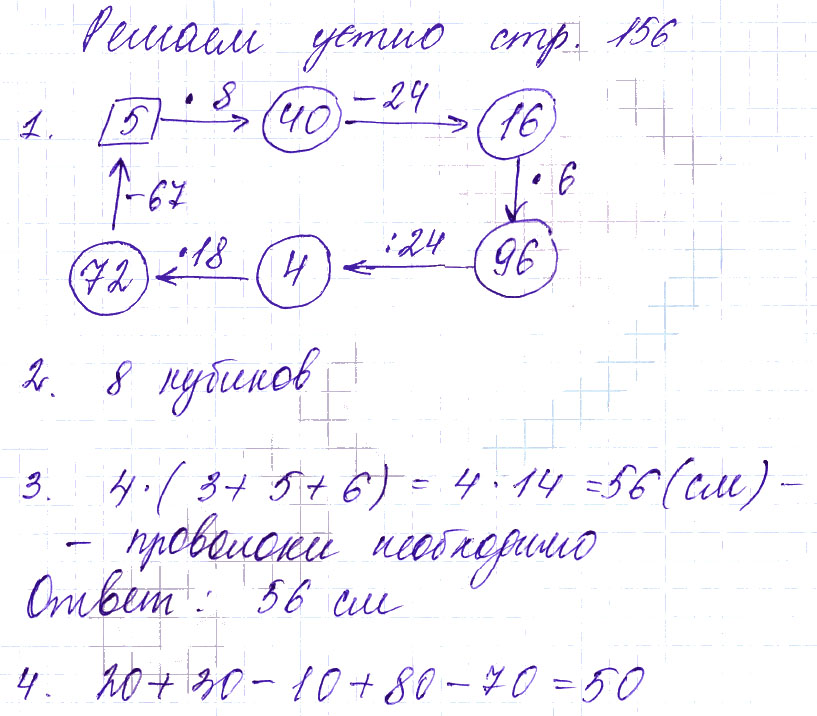 Решаем устно стр. 156
1. 5 · 8 40 - 24 16
- 67 · 6
72 · 18 4 : 24 96
2. 8 кубиков
3. 4 · ( 3 + 5 + 6 ) = 4 · 14 = 56 (см) -
- проволоки необходимо
Ответ : 56 см
4. 20 + 30 - 10 + 80 - 70 = 50